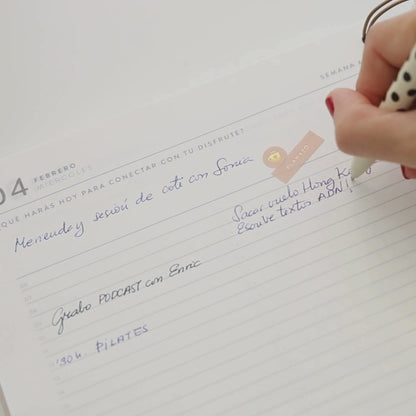 SEMANA
04 FEBRERO
MIÉRCOLES
QUÉ HARÁS HOY PARA CONECTAR CON TU DISFRUTE?
Meneuda y sesión de coti con Sonia
Sacar vuelo Hong Ko
Escribe textos ADN!
Grabo PODCAST con Enric
'30h. PILATES